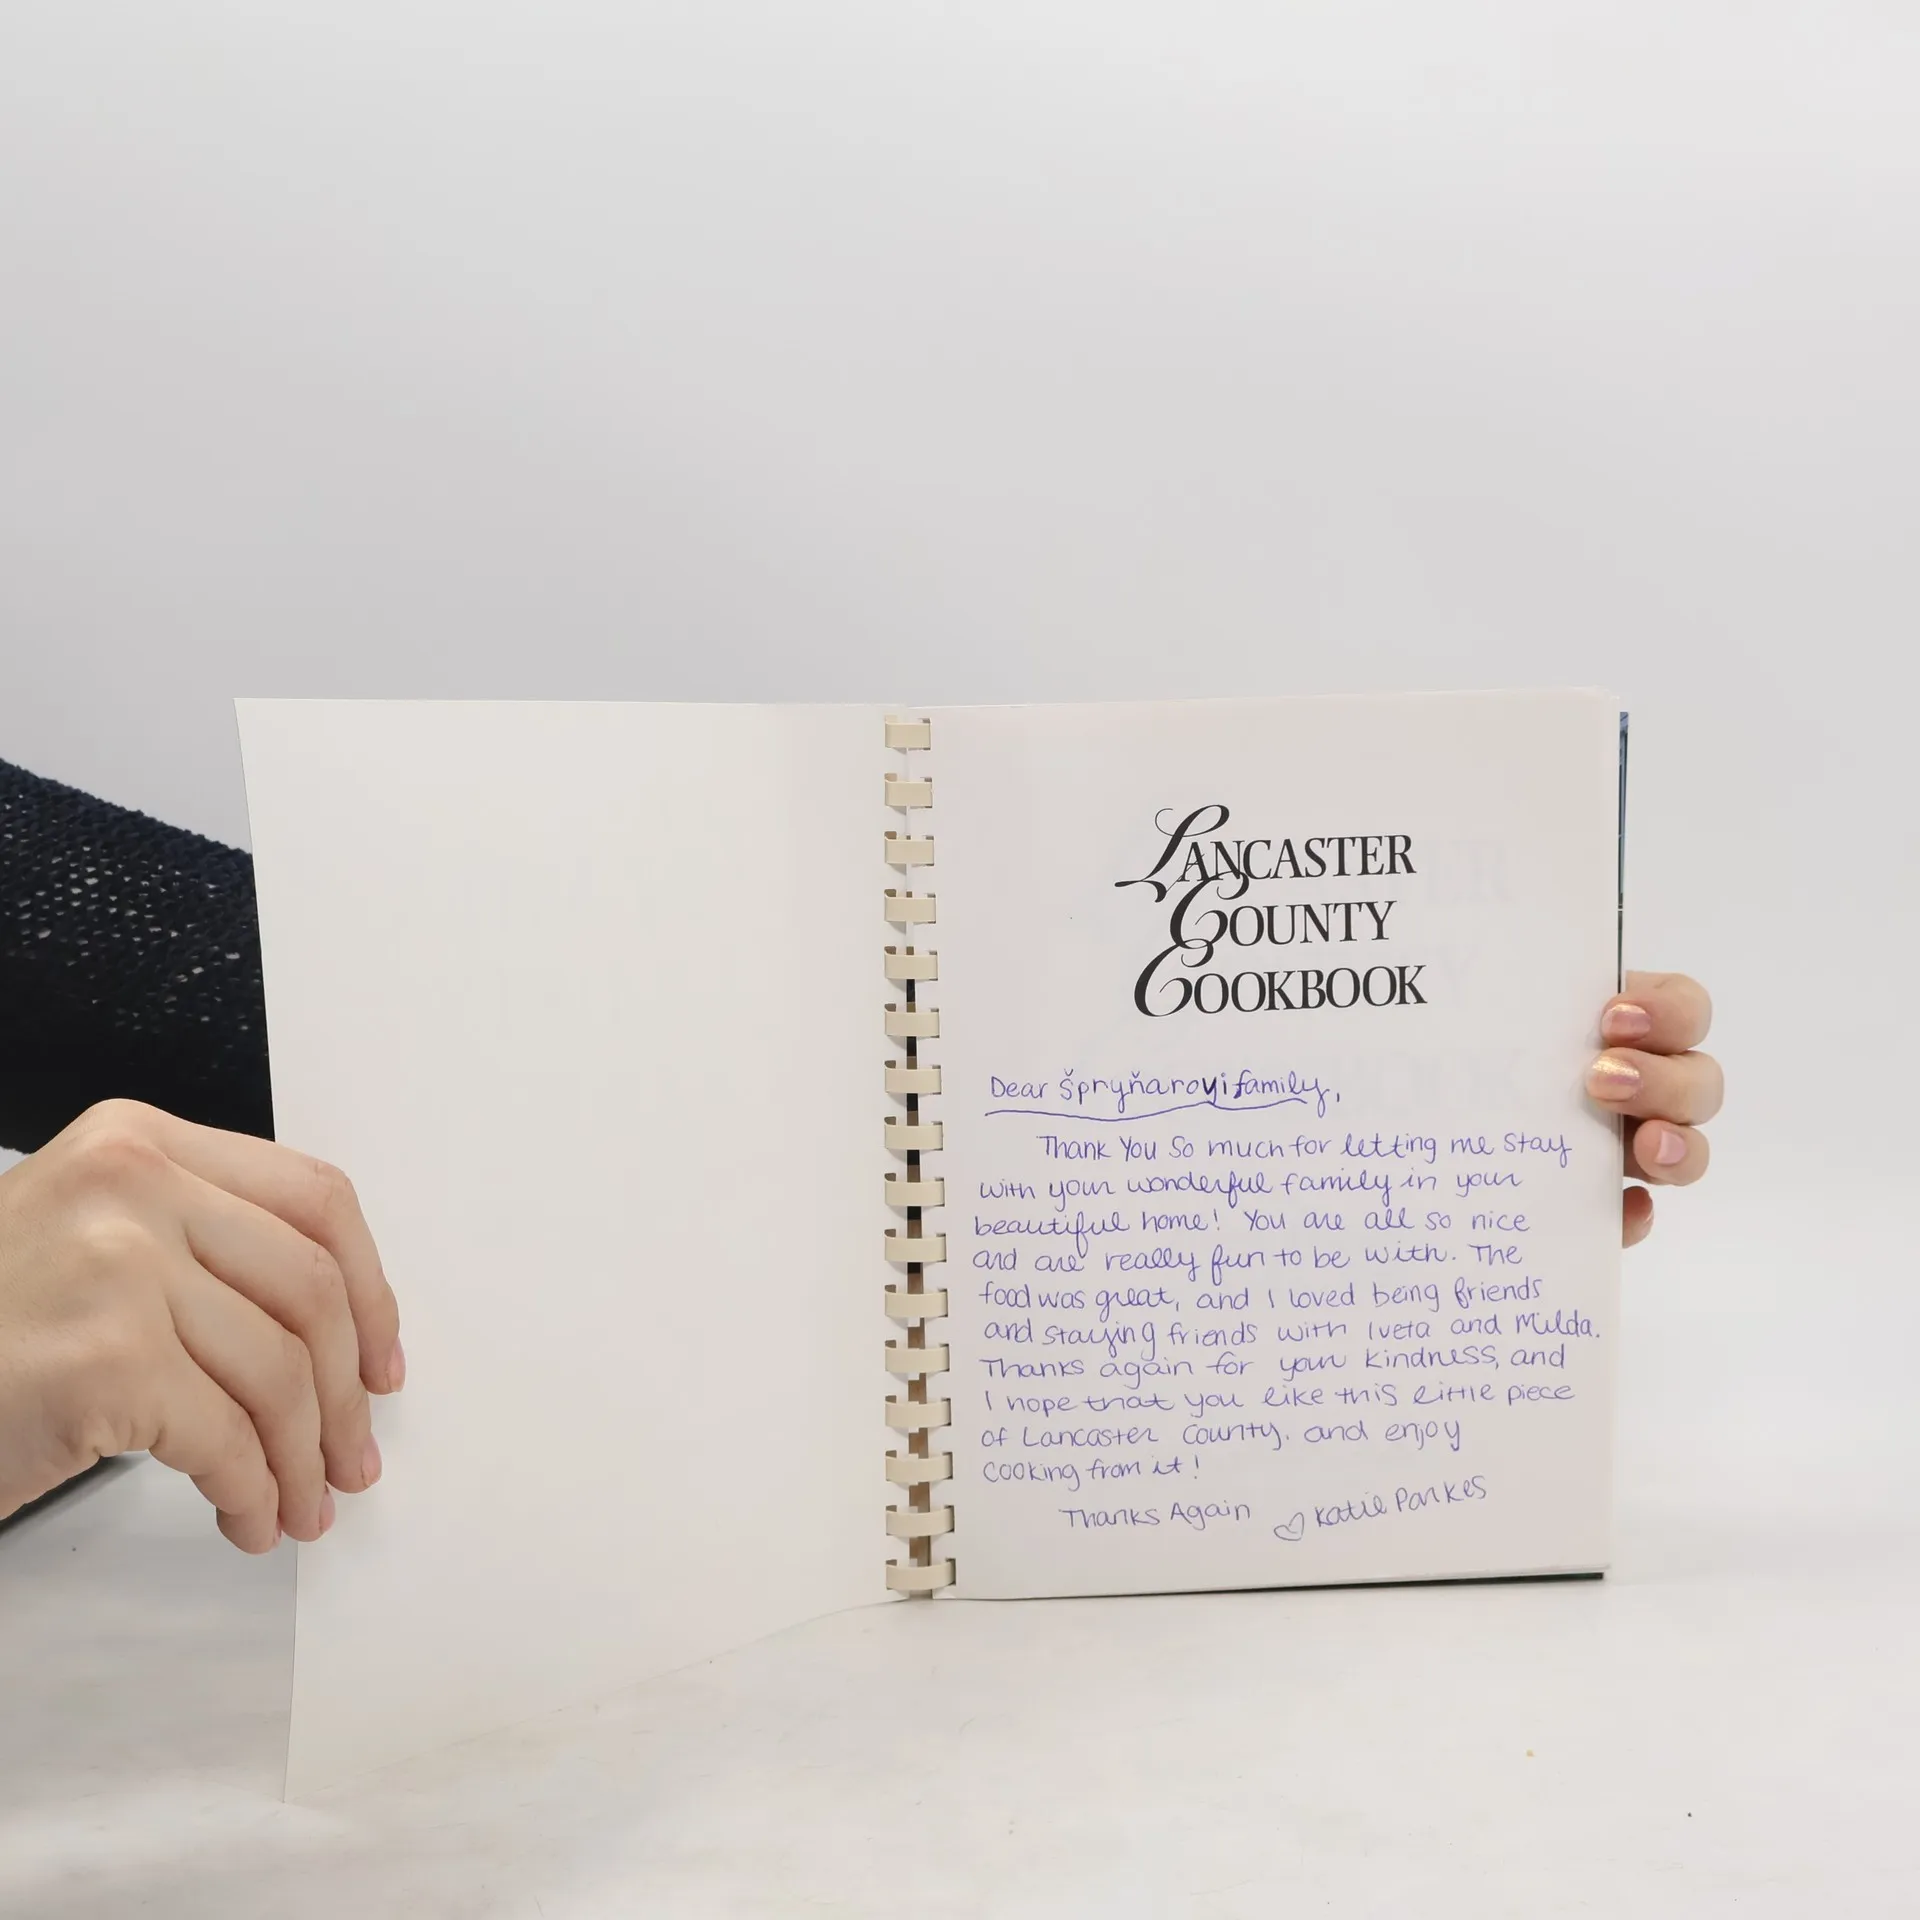 LANCASTER
COUNTY
COOKBOOK
Dear Špryňarovi family,
Thank You So much for letting me stay
with your wonderful family in your
beautiful home! You are all so nice
and are really fun to be with. The
food was great, and I loved being friends
and staying friends with Iveta and Milda.
Thanks again for your kindness, and
I hope that you like this little piece
of Lancaster County. and enjoy
cooking from it!
Thanks Again ♡ Katie Parkes